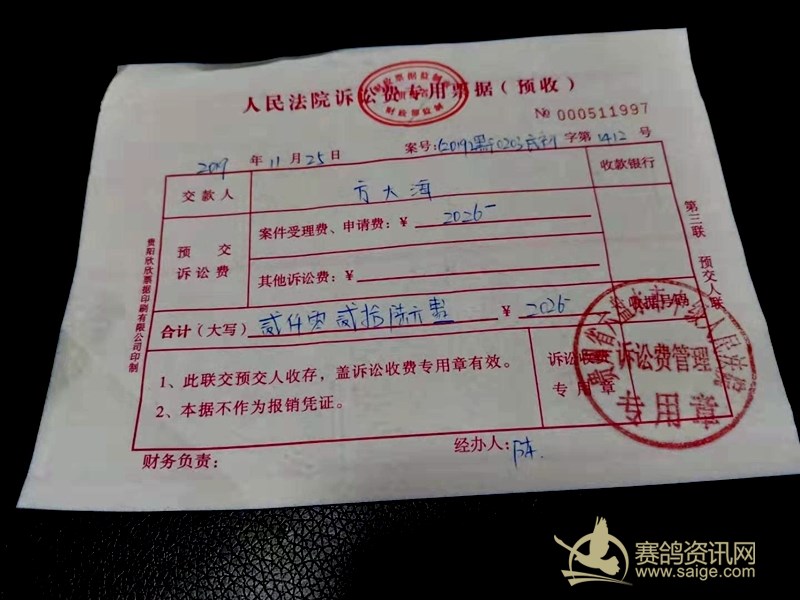 人民法院诉讼费专用票据（预收）
财政部监制
№ 000511997
2019 年 11 月 25 日
案号：(2019)黔0203民初 字第 1412 号
交款人 方大海 收款银行
预交诉讼费 案件受理费、申请费：¥ 2026-
其他诉讼费：¥
合计（大写） 贰仟零贰拾陆元整 ¥ 2026- 收据号码
1、此联交预交人收存，盖诉讼收费专用章有效。
2、本据不作为报销凭证。
诉讼
专用章
诉讼费管理
专用章
财务负责：
经办人：陈.
第三联 预交人联
贵阳欣欣票据印刷有限公司印制
赛鸽资讯网
www.saige.com